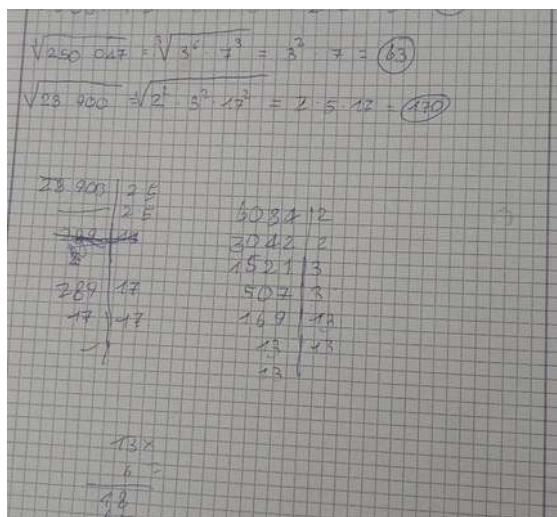 ∛250 047 = ∛3⁶ · 7³ = 3² · 7 = 63
√28 900 = √2² · 5² · 17² = 2 · 5 · 17 = 170
28 900 | 2·5
2·5
289 | 17
17 | 17
1
6084 | 2
3042 | 2
1521 | 3
507 | 3
169 | 13
13 | 13
13
13 ×
6 =
18